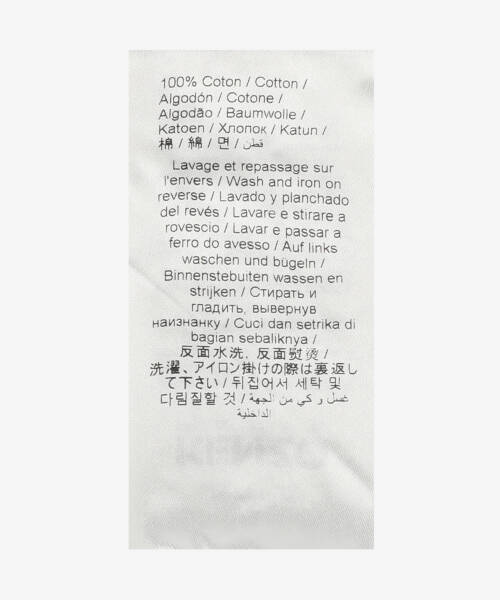 100% Coton / Cotton /
Algodón / Cotone /
Algodão / Baumwolle /
Katoen / Хлопок / Katun /
棉 / 綿 / 면 / قطن /
Lavage et repassage sur
l'envers / Wash and iron on
reverse / Lavado y planchado
del revés / Lavare e stirare a
rovescio / Lavar e passar a
ferro do avesso / Auf links
waschen und bügeln /
Binnenstebuiten wassen en
strijken / Стирать и
гладить, вывернув
наизнанку / Cuci dan setrika di
bagian sebaliknya /
反面水洗, 反面熨烫 /
洗濯、アイロン掛けの際は裏返し
て下さい / 뒤집어서 세탁 및
다림질할 것 / غسل و كي من الجهة
الداخلية
KENZO